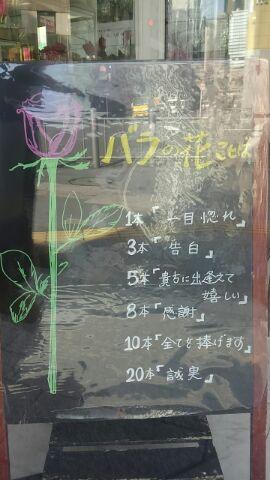 バラの花ことば
1本「一目惚れ」
3本「告白」
5本「貴方に出逢えて
嬉しい」
8本「感謝」
10本「全てを捧げます」
20本「誠実」